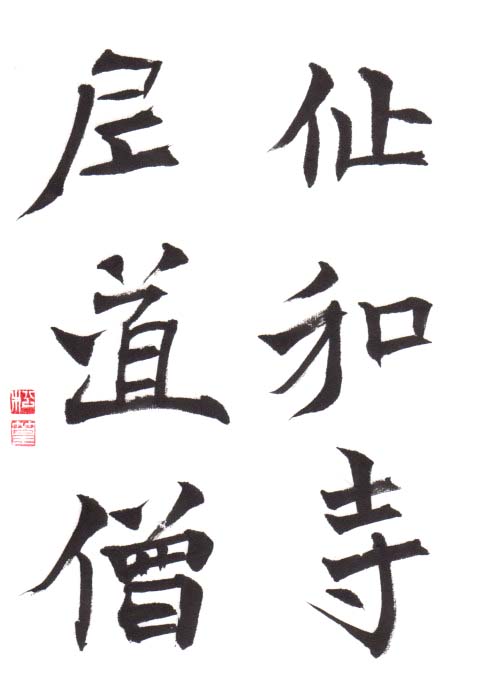 仙和寺
尼道僧